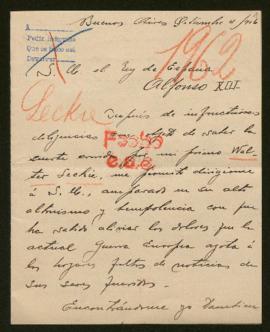 Buenos Aires Setiembre 4/916
A
Pedir informes
1962
S. M. el Rey de España
Alfonso XIII.
Leckie
Después de infructuosas
diligencias
saber la
suerte mi primo Wal-
ter Leckie, me permito dirigirme
á S. M., amparado en su alto
altruismo y benevolencia con que
ha sabido aliviar los dolores que la
actual Guerra Europea agota á
los hogares faltos de noticias de
sus seres queridos.
Encontrándome yo